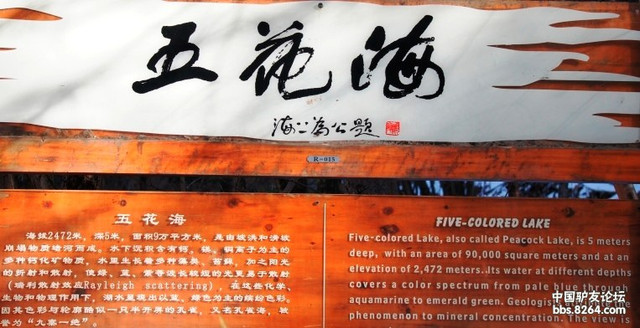 五花海
海以为公题
R-015
五花海
海拔2472米，深5米，面积9万平方米，是由坡洪和滑坡
崩塌物质堵河而成，水下沉积含有钙、镁、铜离子为主的
多种钙化矿物质，水里生长着多种藻类、苔藓，加之阳光
的折射和散射，使绿、蓝、紫等波长较短的光更易于散射
（瑞利散射效应Rayleigh scattering），在这些化学、
生物和物理作用下，湖水呈现出以蓝、绿色为主的缤纷色彩，
因其色彩与轮廓酷似一只半开屏的孔雀，又名孔雀海，被
誉为"九寨一绝"
FIVE-COLORED LAKE
Five-colored Lake, also called Peacock Lake, is 5 meters
deep, with an area of 90,000 square meters and at an
elevation of 2,472 meters. Its water at different depths
covers a color spectrum from pale blue through
aquamarine to emerald green. Geologists
phenomenon to mineral concentration. The view is
中国驴友论坛
bbs.8264.com